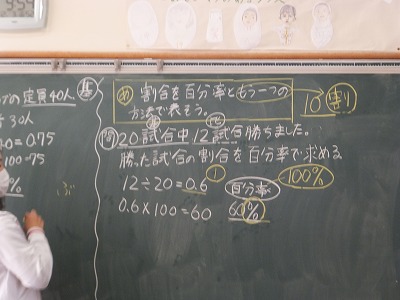 の定員40人
30人
=0.75
100=75
%
基
め 割合を百分率ともう一つの
方法で表そう。
10割
基 比
問 20試合中12試合勝ちました。
勝った試合の割合を百分率で求める
12÷20=0.6
1
百分率
100%
0.6×100=60 60%
ぶ